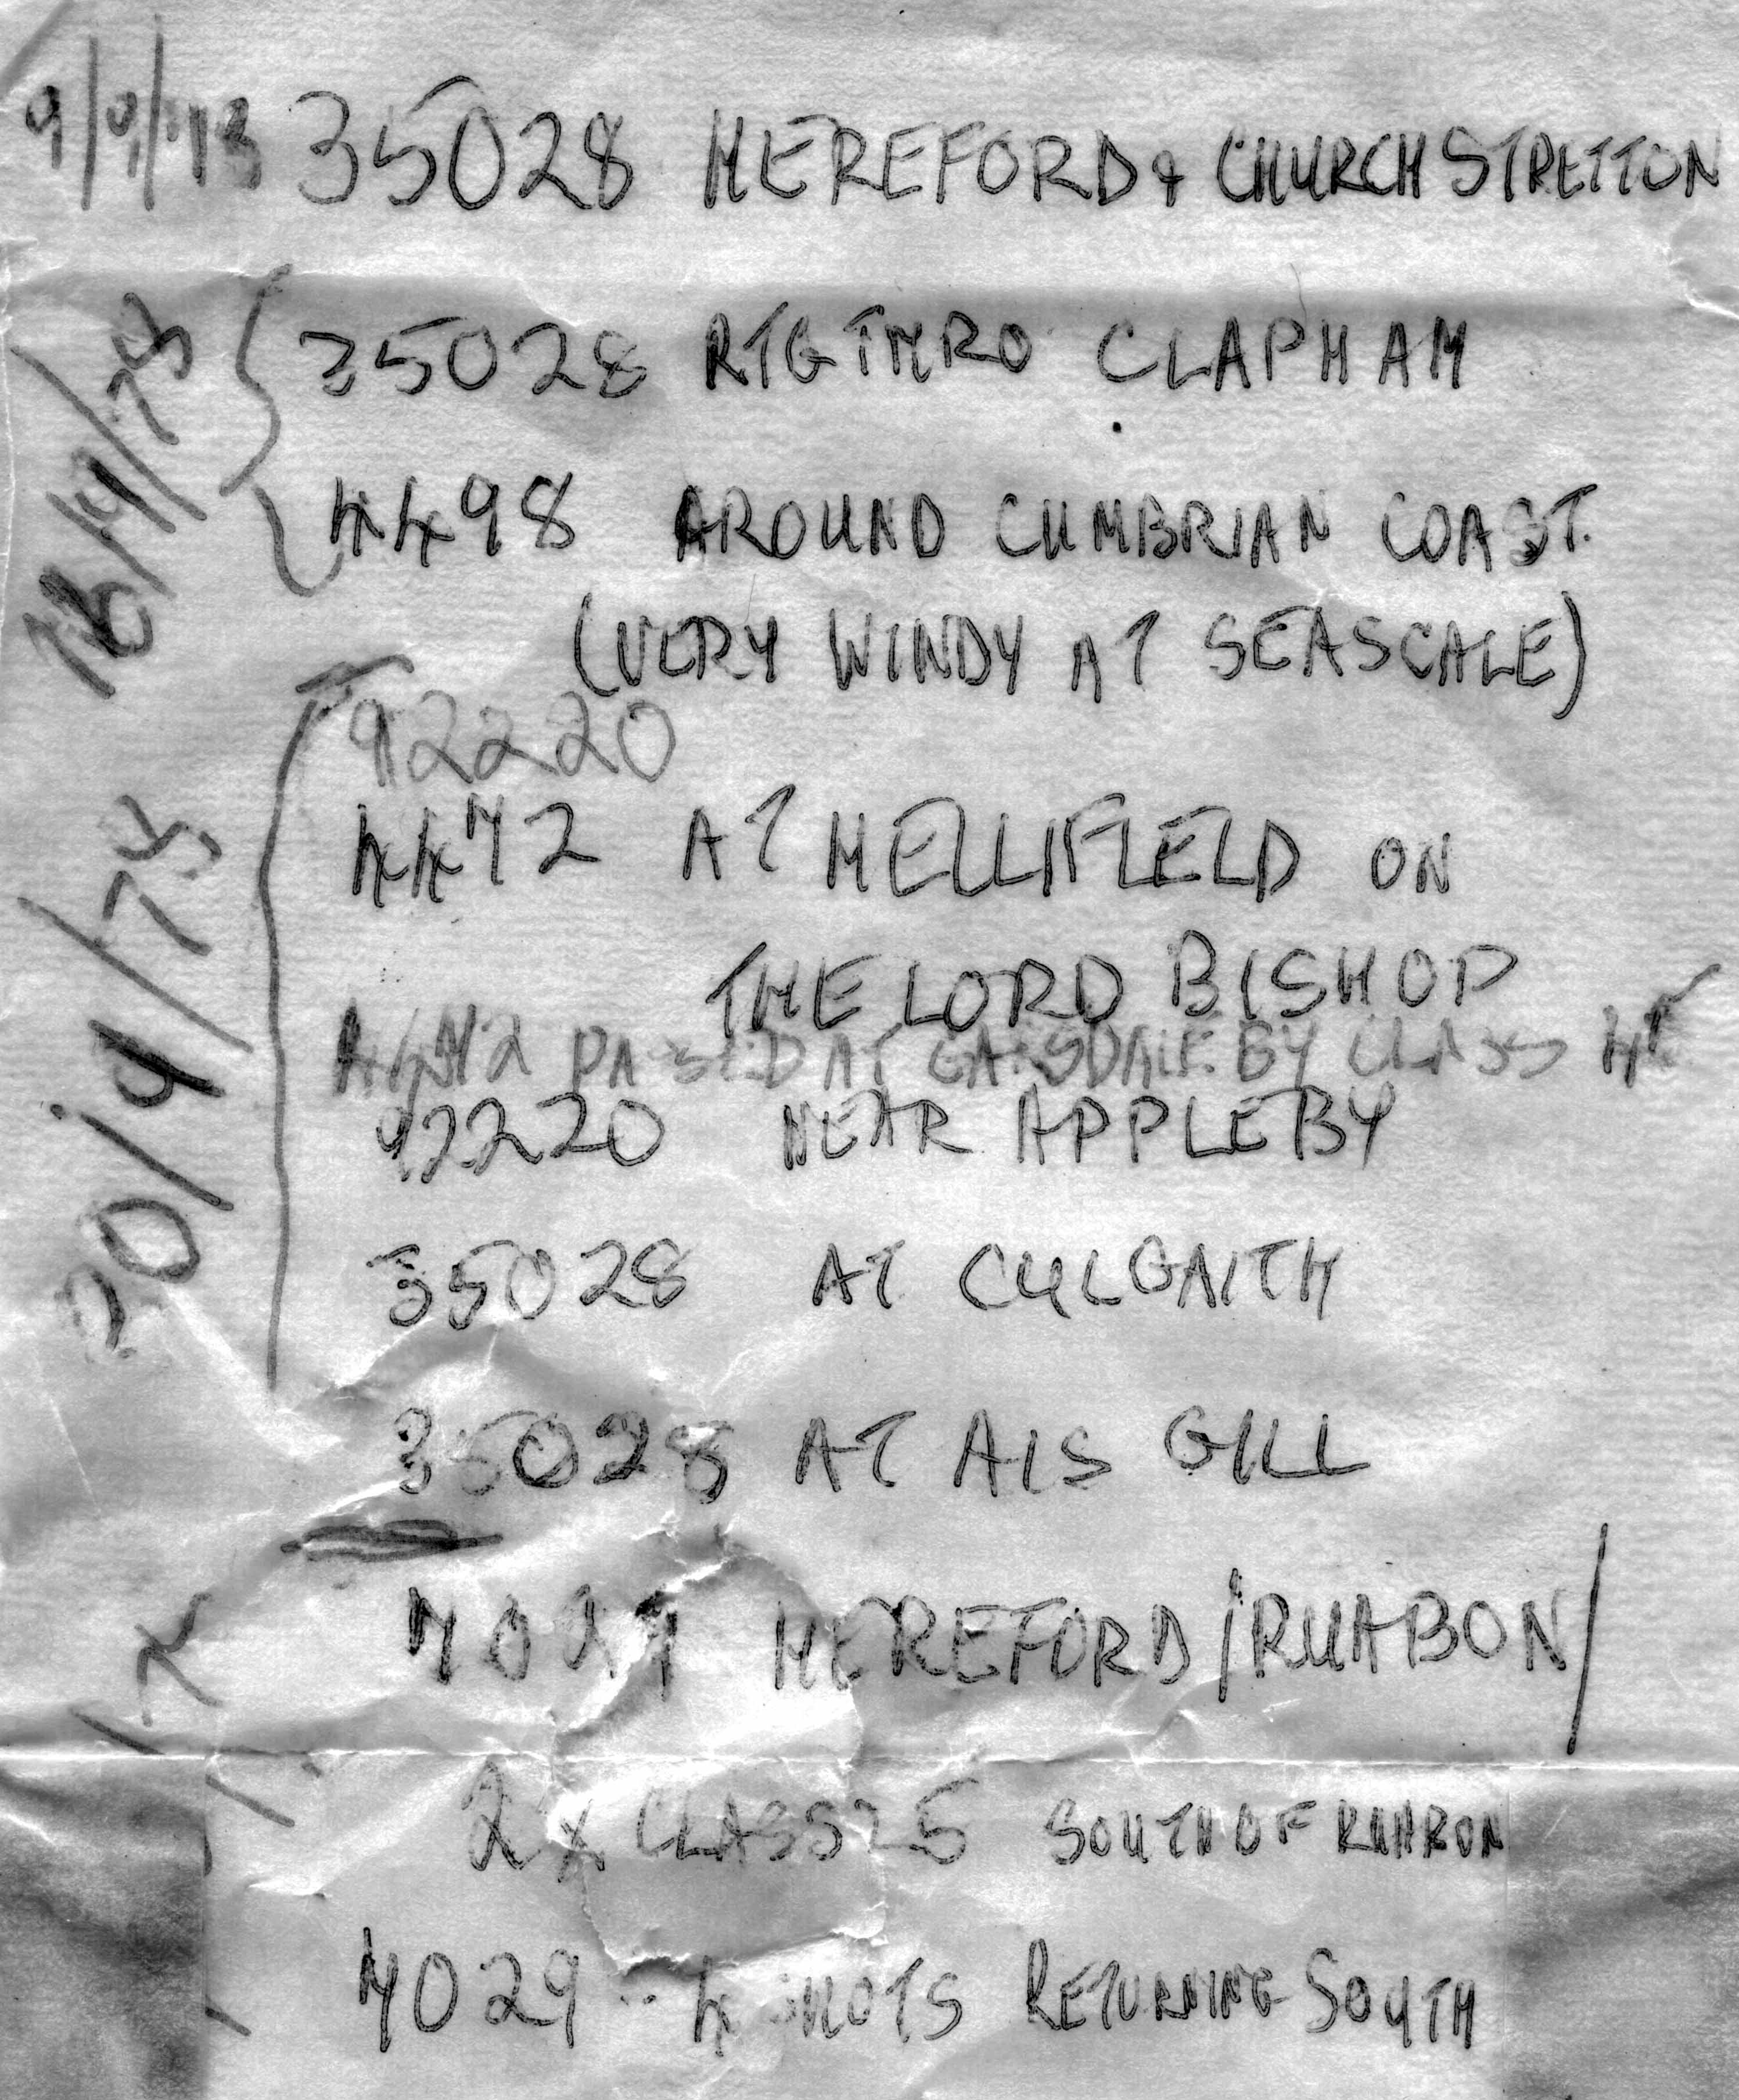 35028 HEREFORD & CHURCH STRETTON
35028 CLAPHAM
4498 AROUND CUMBRIAN COAST.
(VERY WINDY AT SEASCALE)
92220
4472 AT HELLIFIELD ON
THE LORD BISHOP
4472 PASSED AT GARSDALE BY CLASS
92220 NEAR APPLEBY
35028 AT CULGAITH
35028 AT AIS GILL
7029 HEREFORD / RUABON /
2 X CLASS 25 SOUTH OF RUABON
7029 4 SHOTS RETURNING SOUTH
20/4/78